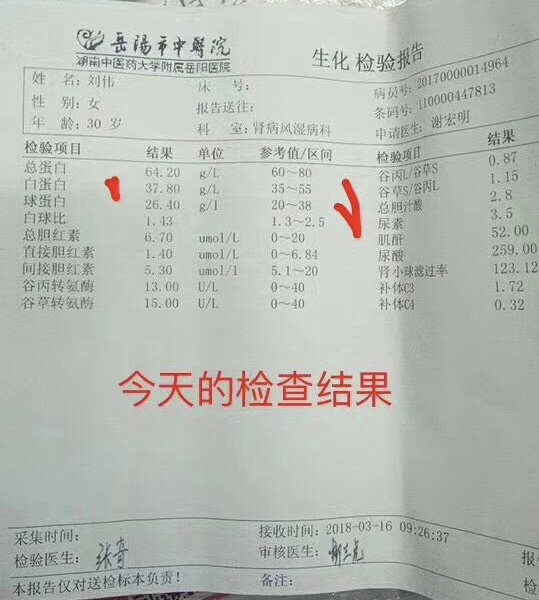 岳陽市中醫院
湖南中医药大学附属岳阳医院
生化检验报告
姓 名：刘伟
床 号：
病员号：20170000014964
性 别：女
报告送往：
条码号：110000447813
年 龄：30 岁
科 室：肾病风湿病科
申请医生：谢宏明
检验项目 结果 单位 参考值/区间 检验项目 结果
总蛋白 64.20 g/L 60～80 谷丙L/谷草S 0.87
白蛋白 37.80 g/L 35～55 谷草S/谷丙L 1.15
球蛋白 26.40 g/l 20～38 总胆汁酸 2.8
白球比 1.43 1.3～2.5 尿素 3.5
总胆红素 6.70 umol/L 0～20 肌酐 52.00
直接胆红素 1.40 umol/L 0～6.84 尿酸 259.00
间接胆红素 5.30 umol/l 5.1～20 肾小球滤过率 123.12
谷丙转氨酶 13.00 U/L 0～40 补体C3 1.72
谷草转氨酶 15.00 U/L 0～40 补体C4 0.32
今天的检查结果
采集时间：
接收时间：2018-03-16 09:26:37
检验医生：
审核医生：
报
本报告仅对送检标本负责！
备注：
检